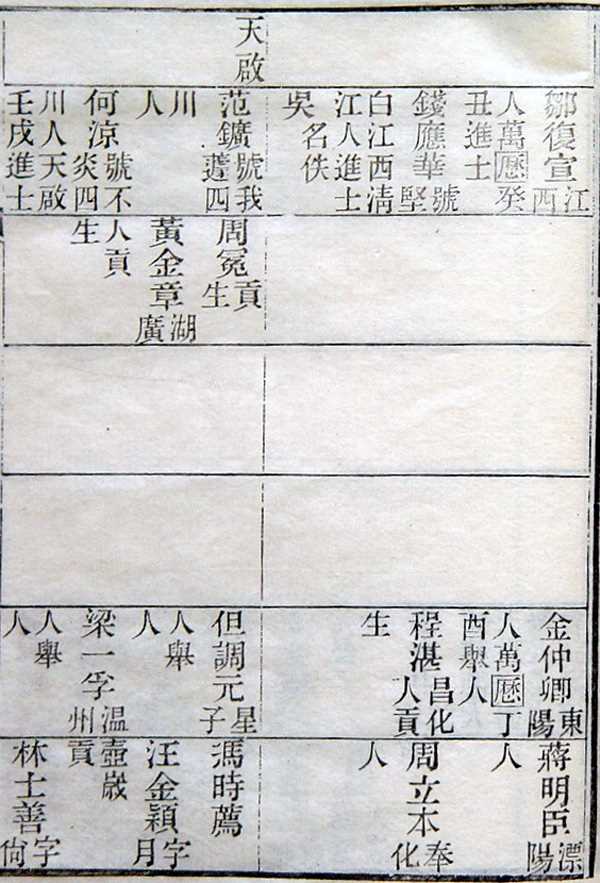 天啟
鄒復宣江西
人萬曆癸
丑進士
錢應華號堅
白江西清
江人進士
吳名佚
范鑛號我
蘧四
川
人
何涼號不
炎四
川人天啟
壬戌進士
周冕貢生
黃金章湖廣
人貢
生
金仲卿東陽
人萬曆丁
酉舉人
程湛昌化
人貢
生
但調元星子
人舉
人
梁一孚溫州
人舉
人
蔣明臣漂陽
人
周立本奉化
人
馮時薦
汪金穎字月
壺歲
貢
林士善字尙